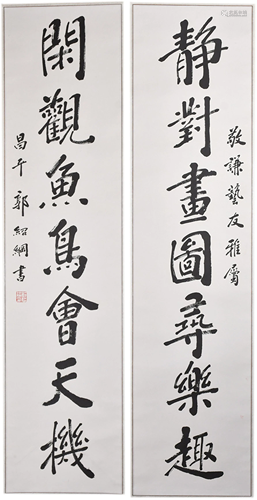 静對畫圖尋樂趣
敬謙藝友雅屬
閑觀魚鳥會天機
昌平郭紹綱書